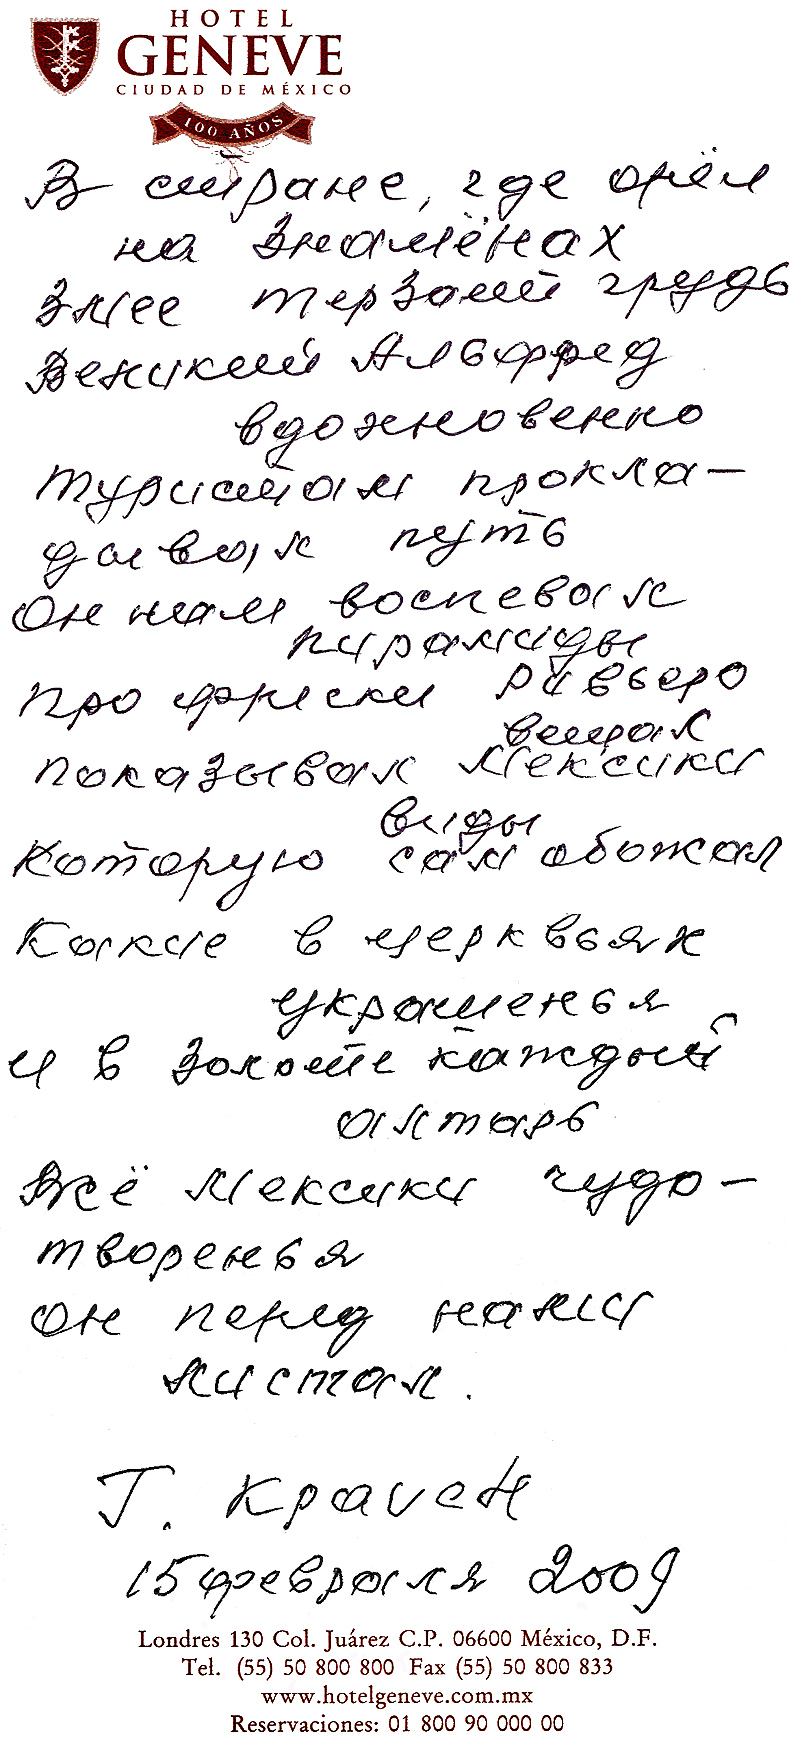 HOTEL
GENEVE
CIUDAD DE MÉXICO
100 AÑOS
В стране, где орёл
на знамёнах
Змее терзает грудь
Великий Альфред
вдохновенно
туристам прокла-
дывал путь
Он нам воспевал
пирамиды
про фрески Ривьеро
вещал
показывал Мексики
виды
Которую сам обожал
Какие в церквьях
украшенья
и в золоте каждый
алтарь
Всё Мексики чудо-
творенья
он перед нами
листал.
Г. Красен
15 февраля 2009
Londres 130 Col. Juárez C.P. 06600 México, D.F.
Tel. (55) 50 800 800 Fax (55) 50 800 833
www.hotelgeneve.com.mx
Reservaciones: 01 800 90 000 00